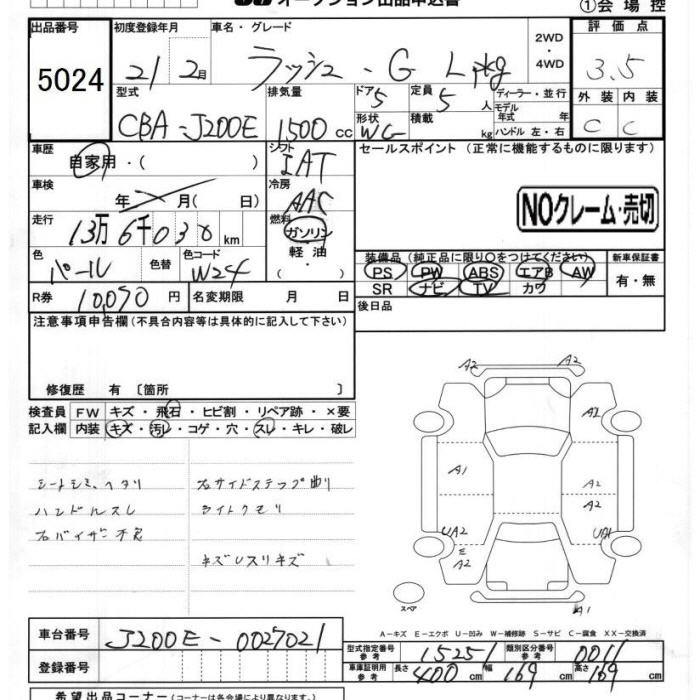 オークション出品申込書
①会場控
出品番号 初度登録年月 車名・グレード 2WD ・ 4WD 評価点
5024 21 2月 ラッシュ・G L pkg 3.5
型式 排気量 ドア 5 定員 5 人 ディーラー・並行 外装 内装
CBA-J200E 1500 cc 形状 WG 積載 kg モデル年式 年 ハンドル 左・右 C C
車歴 自家用・( ) シフト IAT セールスポイント (正常に機能するものに限ります)
車検 年 月(日) 冷房 AAC NOクレーム・売切
走行 13万6千030km 燃料 ガソリン 軽油
色 パール 色替 色コード W24 装備品(純正品に限り〇をつけてください) 新車保証書
PS PW ABS エアB AW 有・無
R券 10,070円 名変期限 月 日 SR ナビ TV カワ
後日品
注意事項申告欄(不具合内容等は具体的に記入して下さい)
修復歴 有 〔箇所 〕
検査員 FW キズ・飛石・ヒビ割・リペア跡・×要
記入欄 内装 キズ・汚レ・コゲ・穴・スレ・キレ・破レ
シートシミ、ヘタリ 右サイドステップ曲り
ハンドルスレ ライトクモリ
右バイザー不良
キズUスリキズ
A2 A2
A1
A1 A2
A2
UA2 UA1
E
A2
スペア A1
A-キズ E-エクボ U-凹み W-補修跡 S-サビ C-腐食 XX-交換済
車台番号 J200E-0027021 型式指定番号 参考 15251 類別区分番号 参考 0011
登録番号 車庫証明用 参考 長さ 400 cm 幅 169 cm 高さ 169 cm
希望出品コーナー(コーナーは各会場により異なります)